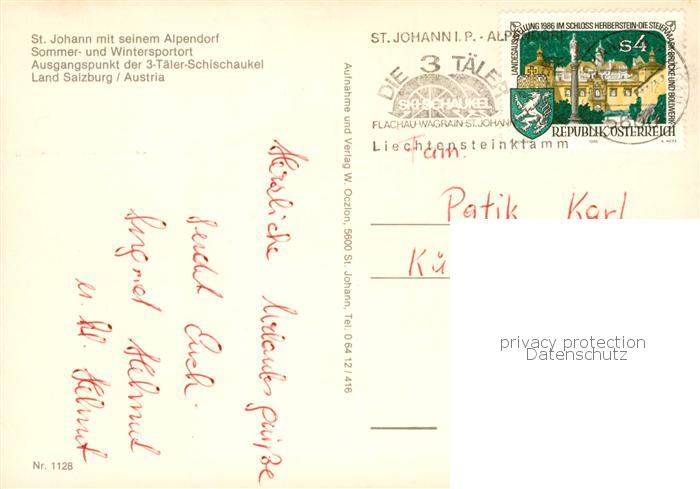 St. Johann mit seinem Alpendorf
Sommer- und Wintersportort
Ausgangspunkt der 3-Täler-Schischaukel
Land Salzburg / Austria
Herzliche Urlaubsgrüße
sendet Euch
Helmut
u. Helmut
Nr. 1128
Aufnahme und Verlag W. Oczlon, 5600 St. Johann, Tel. 0 64 12 / 416
ST. JOHANN I. P. - ALPENDORF
DIE 3 TÄLER
SKI-SCHAUKEL
FLACHAU-WAGRAIN-ST.JOHAN
Liechtensteinklamm
LANDESAUSSTELLUNG 1986 IM SCHLOSS HERBERSTEIN · DIE STEIERMARK · BRÜCKE UND BOLLWERK
S4
REPUBLIK ÖSTERREICH
1986
Fam.
Patik Karl
Kü
privacy protection
Datenschutz